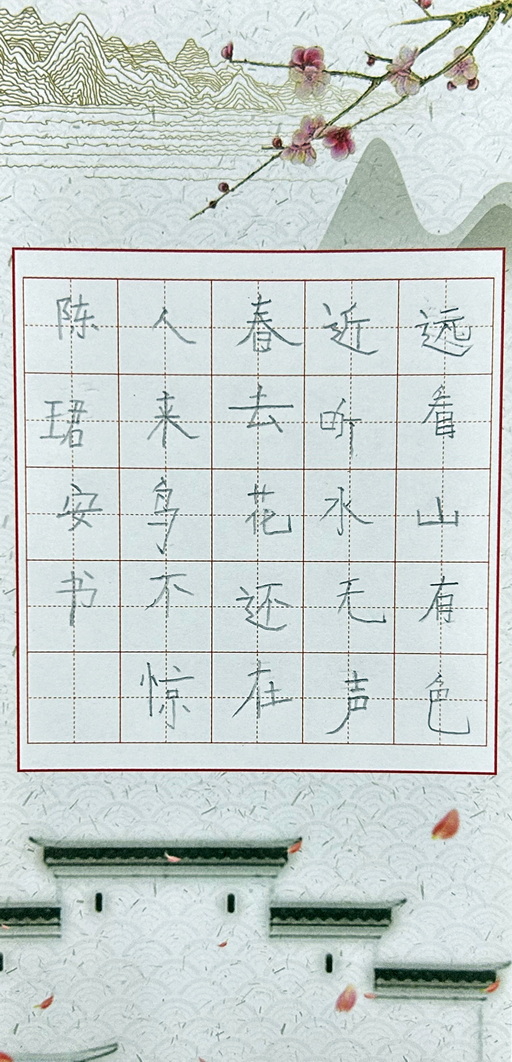 远看山有色
近听水无声
春去花还在
人来鸟不惊
陈珺安书